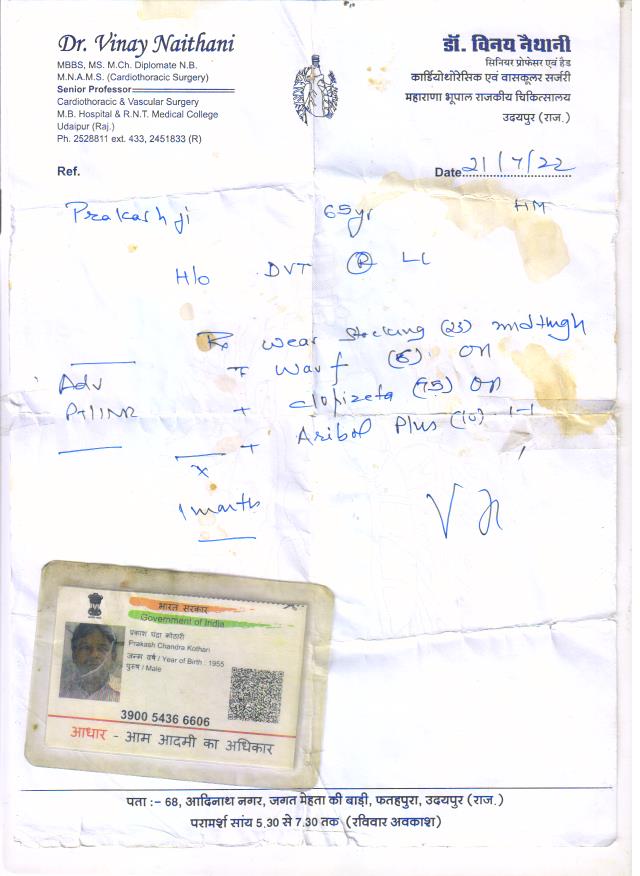 Dr. Vinay Naithani
MBBS, MS. M.Ch. Diplomate N.B.
M.N.A.M.S. (Cardiothoracic Surgery)
Senior Professor
Cardiothoracic & Vascular Surgery
M.B. Hospital & R.N.T. Medical College
Udaipur (Raj.)
Ph. 2528811 ext. 433, 2451833 (R)
डॉ. विनय नैथानी
सिनियर प्रोफेसर एवं हैड
कार्डियोथोरेसिक एवं वासकूलर सर्जरी
महाराणा भूपाल राजकीय चिकित्सालय
उदयपुर (राज.)
Ref.
Date 21/7/22
Prakash ji 65yr HM
H/o DVT (R) LL
Rx wear stocking (23) midthigh
T warf (5) ON
Adv + clopizeta (75) ON
PT/INR + Aribol Plus (10) 1-1
+
x
1 month
भारत सरकार
Government of India
प्रकाश चंद्रा कोठारी
Prakash Chandra Kothari
जन्म वर्ष / Year of Birth : 1955
पुरुष / Male
3900 5436 6606
आधार - आम आदमी का अधिकार
पता :- 68, आदिनाथ नगर, जगत मेहता की बाड़ी, फतहपुरा, उदयपुर (राज.)
परामर्श सांय 5.30 से 7.30 तक (रविवार अवकाश)